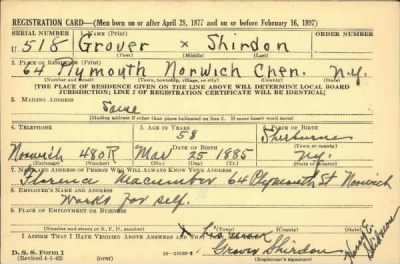 REGISTRATION CARD—(Men born on or after April 28, 1877 and on or before February 16, 1897)
SERIAL NUMBER 1. NAME (Print) ORDER NUMBER
U 518 Grover x Shirdon
(First) (Middle) (Last)
2. PLACE OF RESIDENCE (Print)
64 Plymouth Norwich Chen. N.Y.
(Number and street) (Town, township, village, or city) (County) (State)
[THE PLACE OF RESIDENCE GIVEN ON THE LINE ABOVE WILL DETERMINE LOCAL BOARD
JURISDICTION; LINE 2 OF REGISTRATION CERTIFICATE WILL BE IDENTICAL]
3. MAILING ADDRESS
Same
[Mailing address if other than place indicated on line 2. If same insert word same]
4. TELEPHONE 5. AGE IN YEARS 6. PLACE OF BIRTH
58 Sherburne
DATE OF BIRTH (Town or county)
Norwich 480R Mar 25 1885 N.Y.
(Exchange) (Number) (Mo.) (Day) (Yr.) (State or country)
7. NAME AND ADDRESS OF PERSON WHO WILL ALWAYS KNOW YOUR ADDRESS
Florence Macumber 64 Plymouth St Norwich
8. EMPLOYER'S NAME AND ADDRESS
Works for self.
9. PLACE OF EMPLOYMENT OR BUSINESS
(Number and street or R. F. D. number) (Town) (County) (State)
I AFFIRM THAT I HAVE VERIFIED ABOVE ANSWERS AND THAT THEY ARE TRUE.
D. S. S. Form 1
(Revised 4-1-42) (over)
Grover Shirdon
(Registrant's signature)